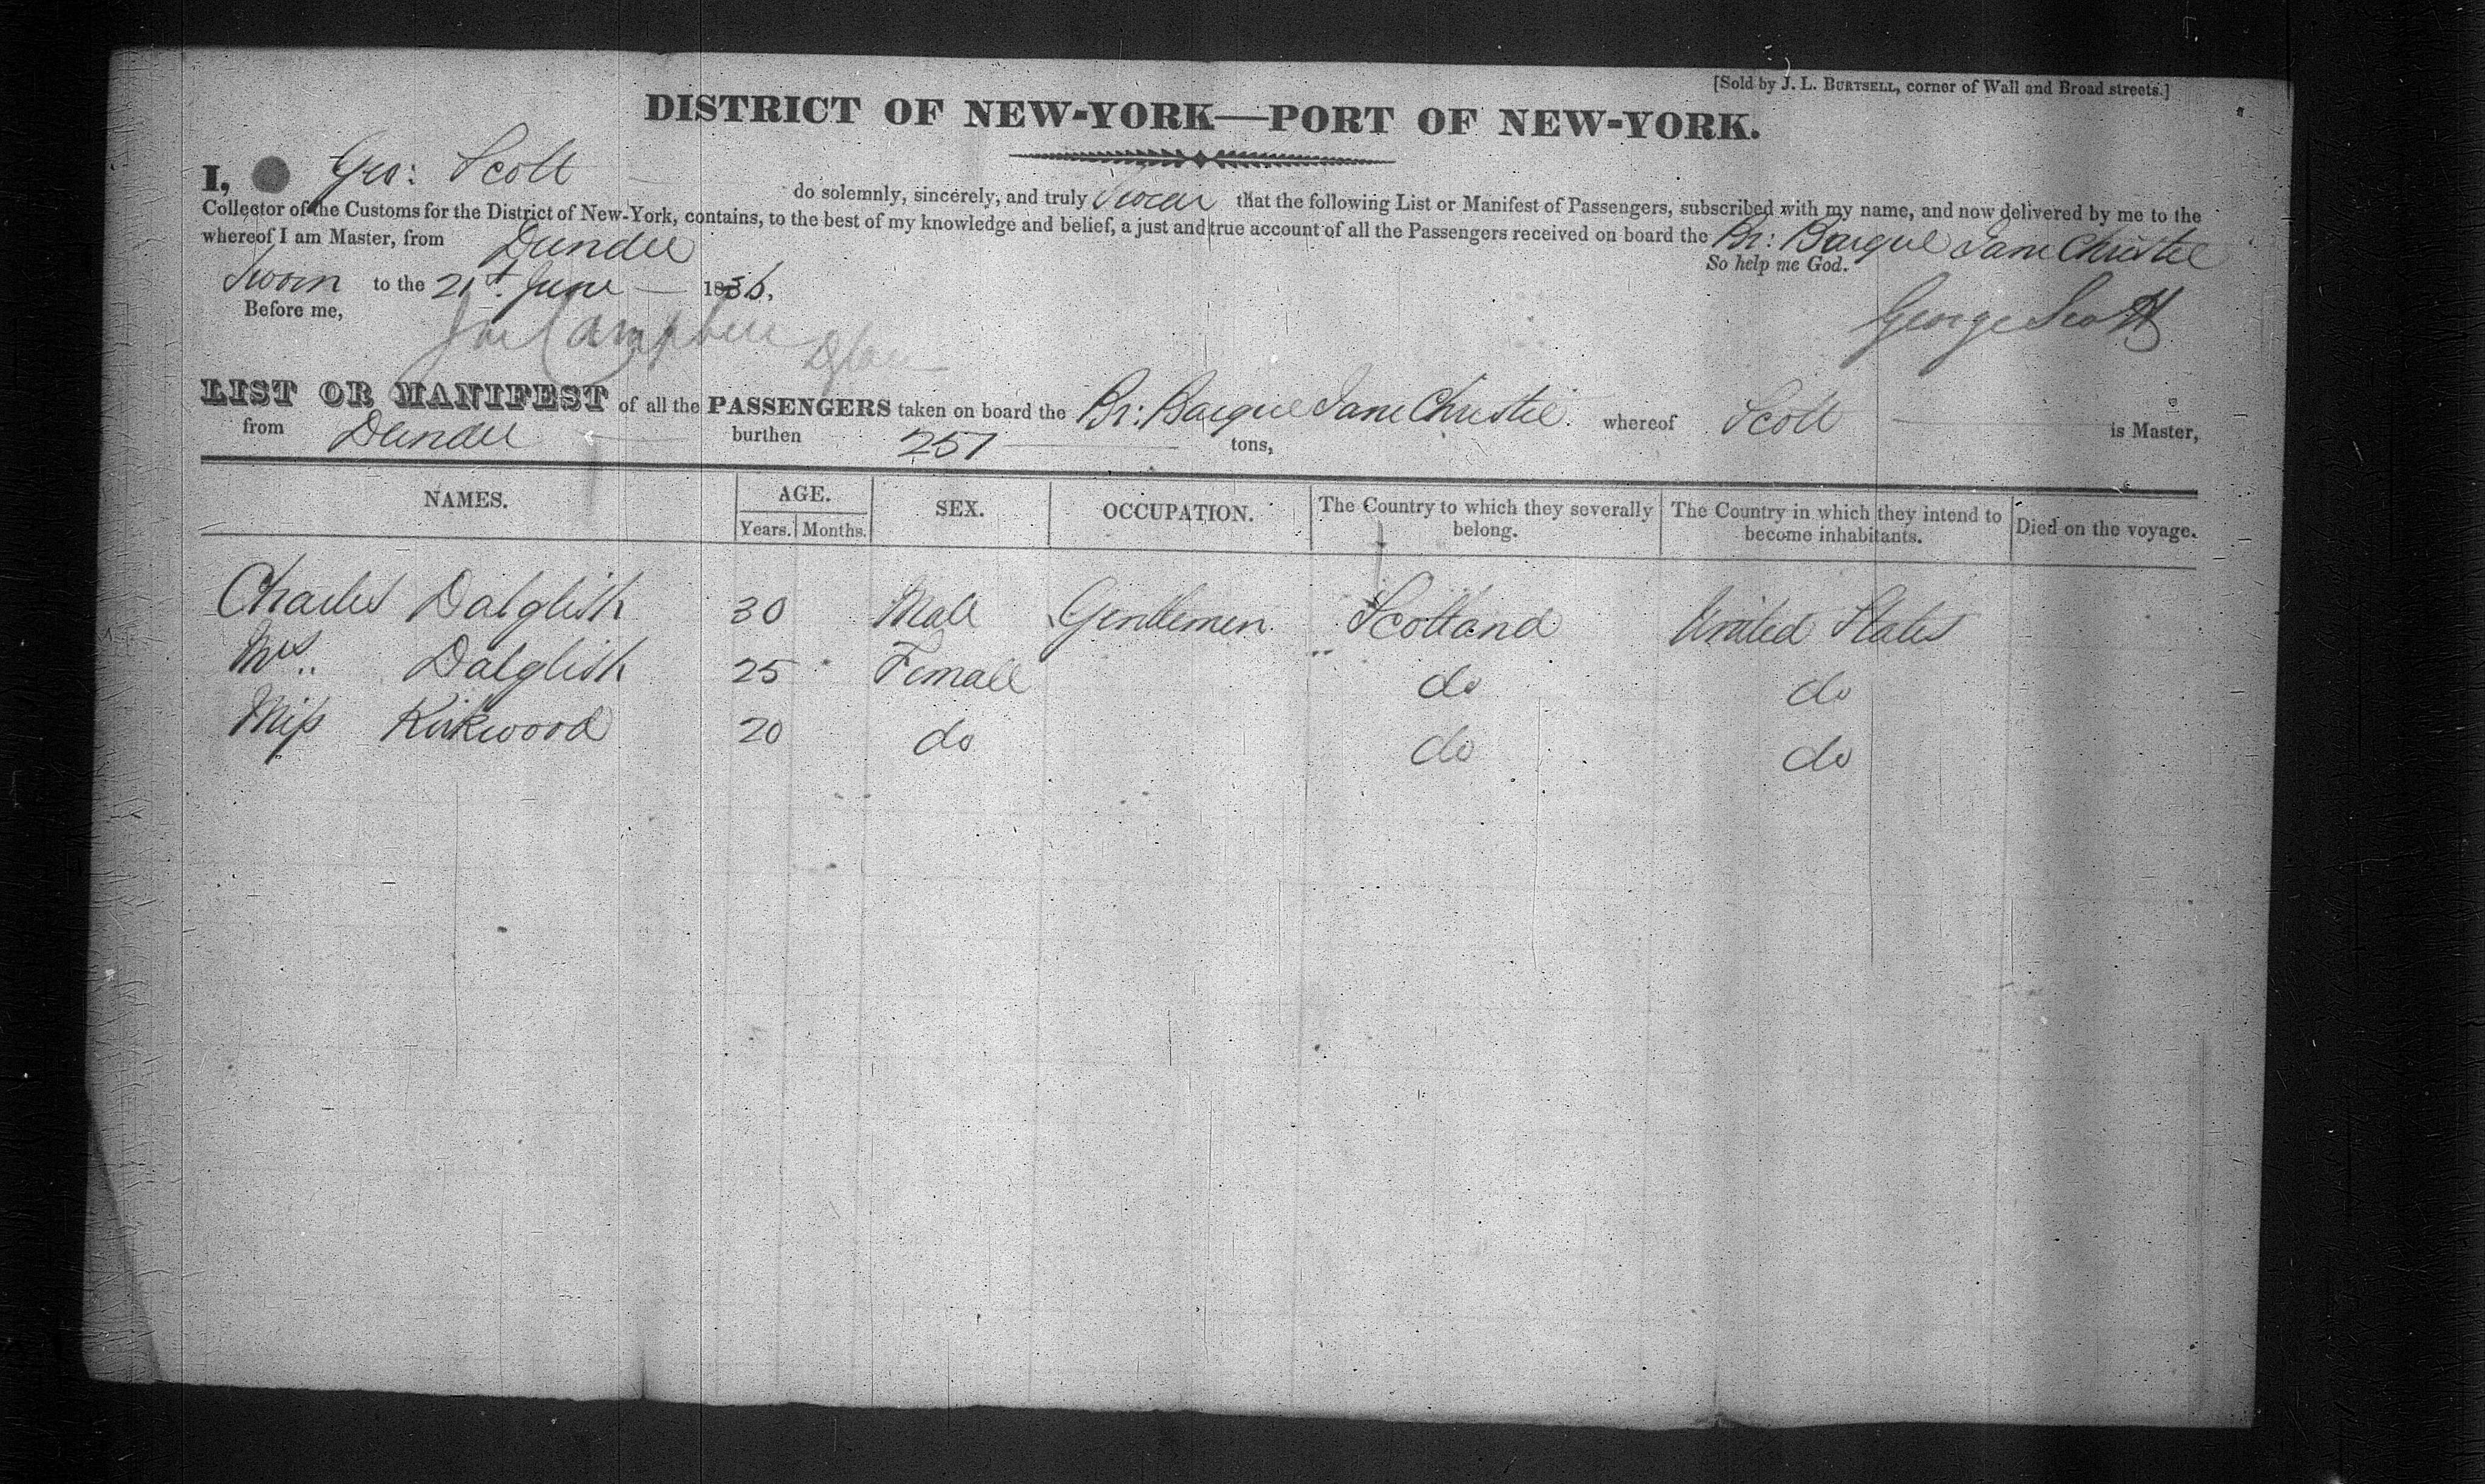 [Sold by J. L. BURTSELL, corner of Wall and Broad streets.]
DISTRICT OF NEW-YORK—PORT OF NEW-YORK.
I, Geo: Scott do solemnly, sincerely, and truly swear that the following List or Manifest of Passengers, subscribed with my name, and now delivered by me to the
Collector of the Customs for the District of New-York, contains, to the best of my knowledge and belief, a just and true account of all the Passengers received on board the Br: Barque Jane Christie
whereof I am Master, from Dundee So help me God.
Sworn to the 21st. June 1836,
George Scott
Before me,
Campbell
LIST OR MANIFEST of all the PASSENGERS taken on board the Br: Barque Jane Christie. whereof Scott is Master,
from Dundee burthen 257 tons,
NAMES. AGE. SEX. OCCUPATION. The Country to which they severally belong. The Country in which they intend to become inhabitants. Died on the voyage.
Years. Months.
Charles Dalglish 30 Male Gentlemen Scotland United States
Mrs.. Dalglish 25 Female do do
Miss Kirkwood 20 do do do